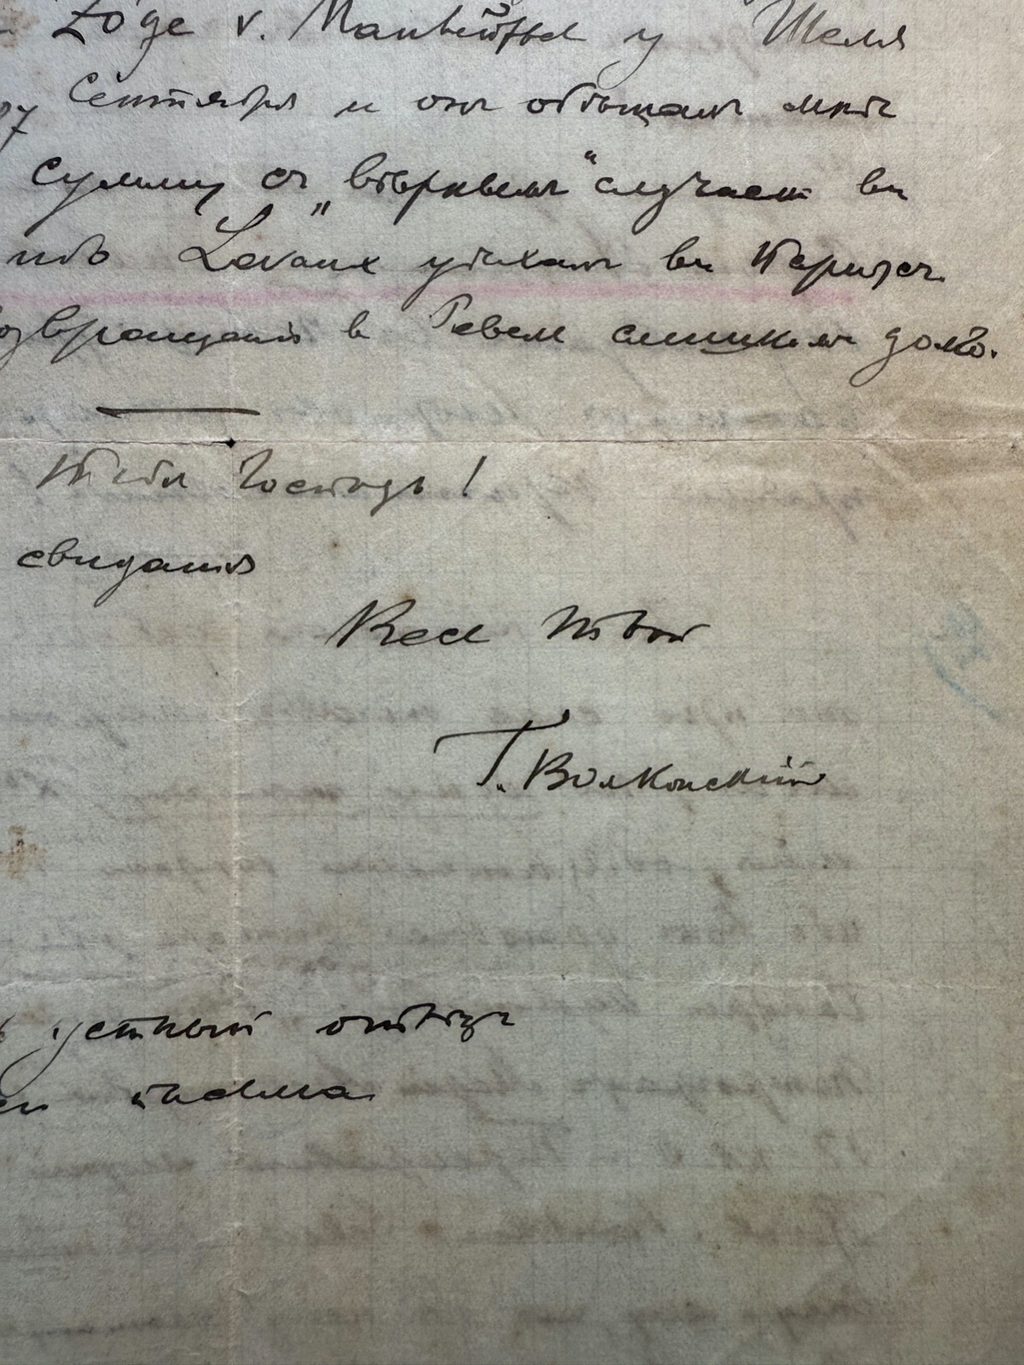 Zöge v. Manteuffel у Шеля
27 Сентября и онъ обѣщалъ мнѣ
сумму съ „вѣрнымъ“ случаемъ въ
Lavaux уѣхалъ въ Парижъ
возвращанія в Ревель слишкомъ долго.
Тебя Господь!
свиданія
Весь Твой
Г. Волконскій
устный отвѣтъ
письма